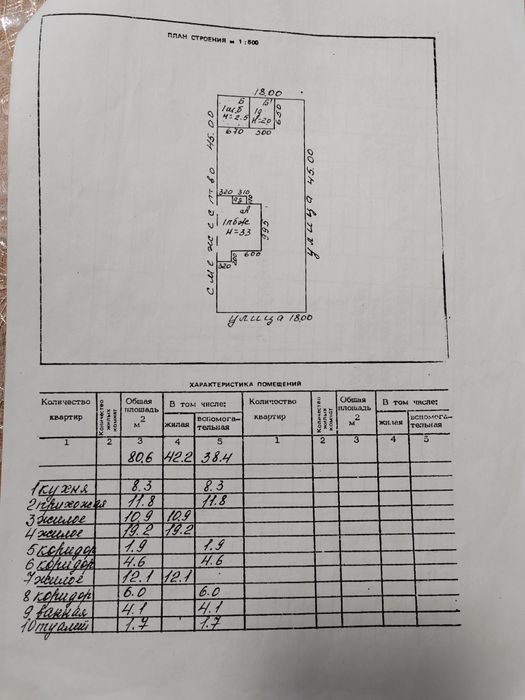 ПЛАН СТРОЕНИЯ м 1:500
18,00
Б Б'
1ш.Б 1д
Н=2.5 Н=20
650
670 500
смежество 45.00
улица 45.00
320 310
А
1пбж
Н=33
995
600
320
улица 18,00
ХАРАКТЕРИСТИКА ПОМЕЩЕНИЙ
Количество квартир Количество жилых комнат Общая площадь м2 В том числе: жилая вспомога-тельная Количество квартир Количество жилых комнат Общая площадь м2 В том числе: жилая вспомога-тельная
1 2 3 4 5 1 2 3 4 5
80,6 42.2 38.4
1 кухня 8.3 8.3
2 прихожая 11.8 11.8
3 жилое 10,9 10,9
4 жилое 19.2 19.2
5 коридор 1.9 1.9
6 коридор 4.6 4.6
7 жилое 12.1 12.1
8 коридор 6.0 6.0
9 ванная 4.1 4.1
10 туалет 1.7 1.7